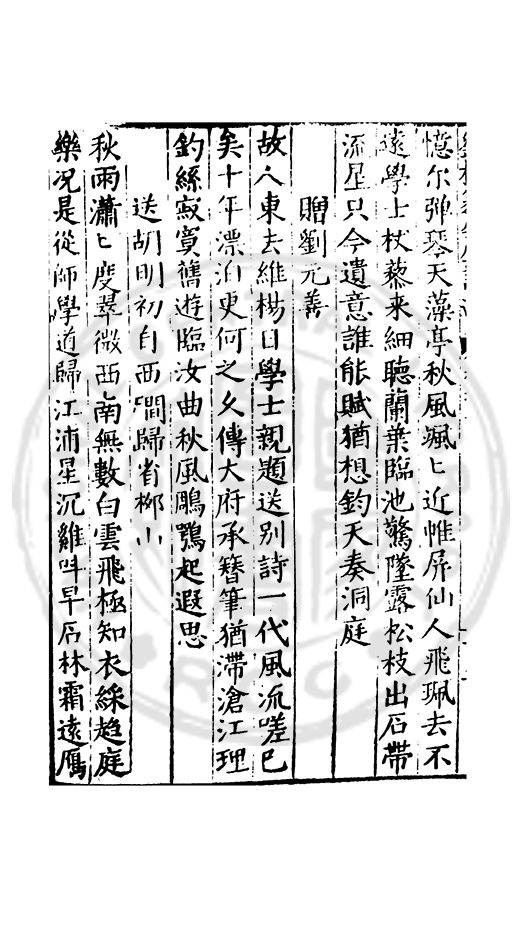 憶尔彈琴天藻亭秋風颯〻近帷屏仙人飛珮去不
遠學士杖藜来細聽蘭葉臨池驚墜露松枝出石帶
流星只今遺意誰能賦猶想鈞天奏洞庭
贈劉元善
故人東去維楊日學士親題送别詩一代風流嗟已
矣十年漂泊更何之久傳大府承簪筆猶滯滄江理
釣絲寂寞舊遊臨汝曲秋風鵰鶚起遐思
送胡明初自西磵歸省柳小
秋雨瀟〻度翠微西南無數白雲飛極知衣綵趋庭
樂况是從師學道歸江浦星沉雞呌早石林霜遠鴈